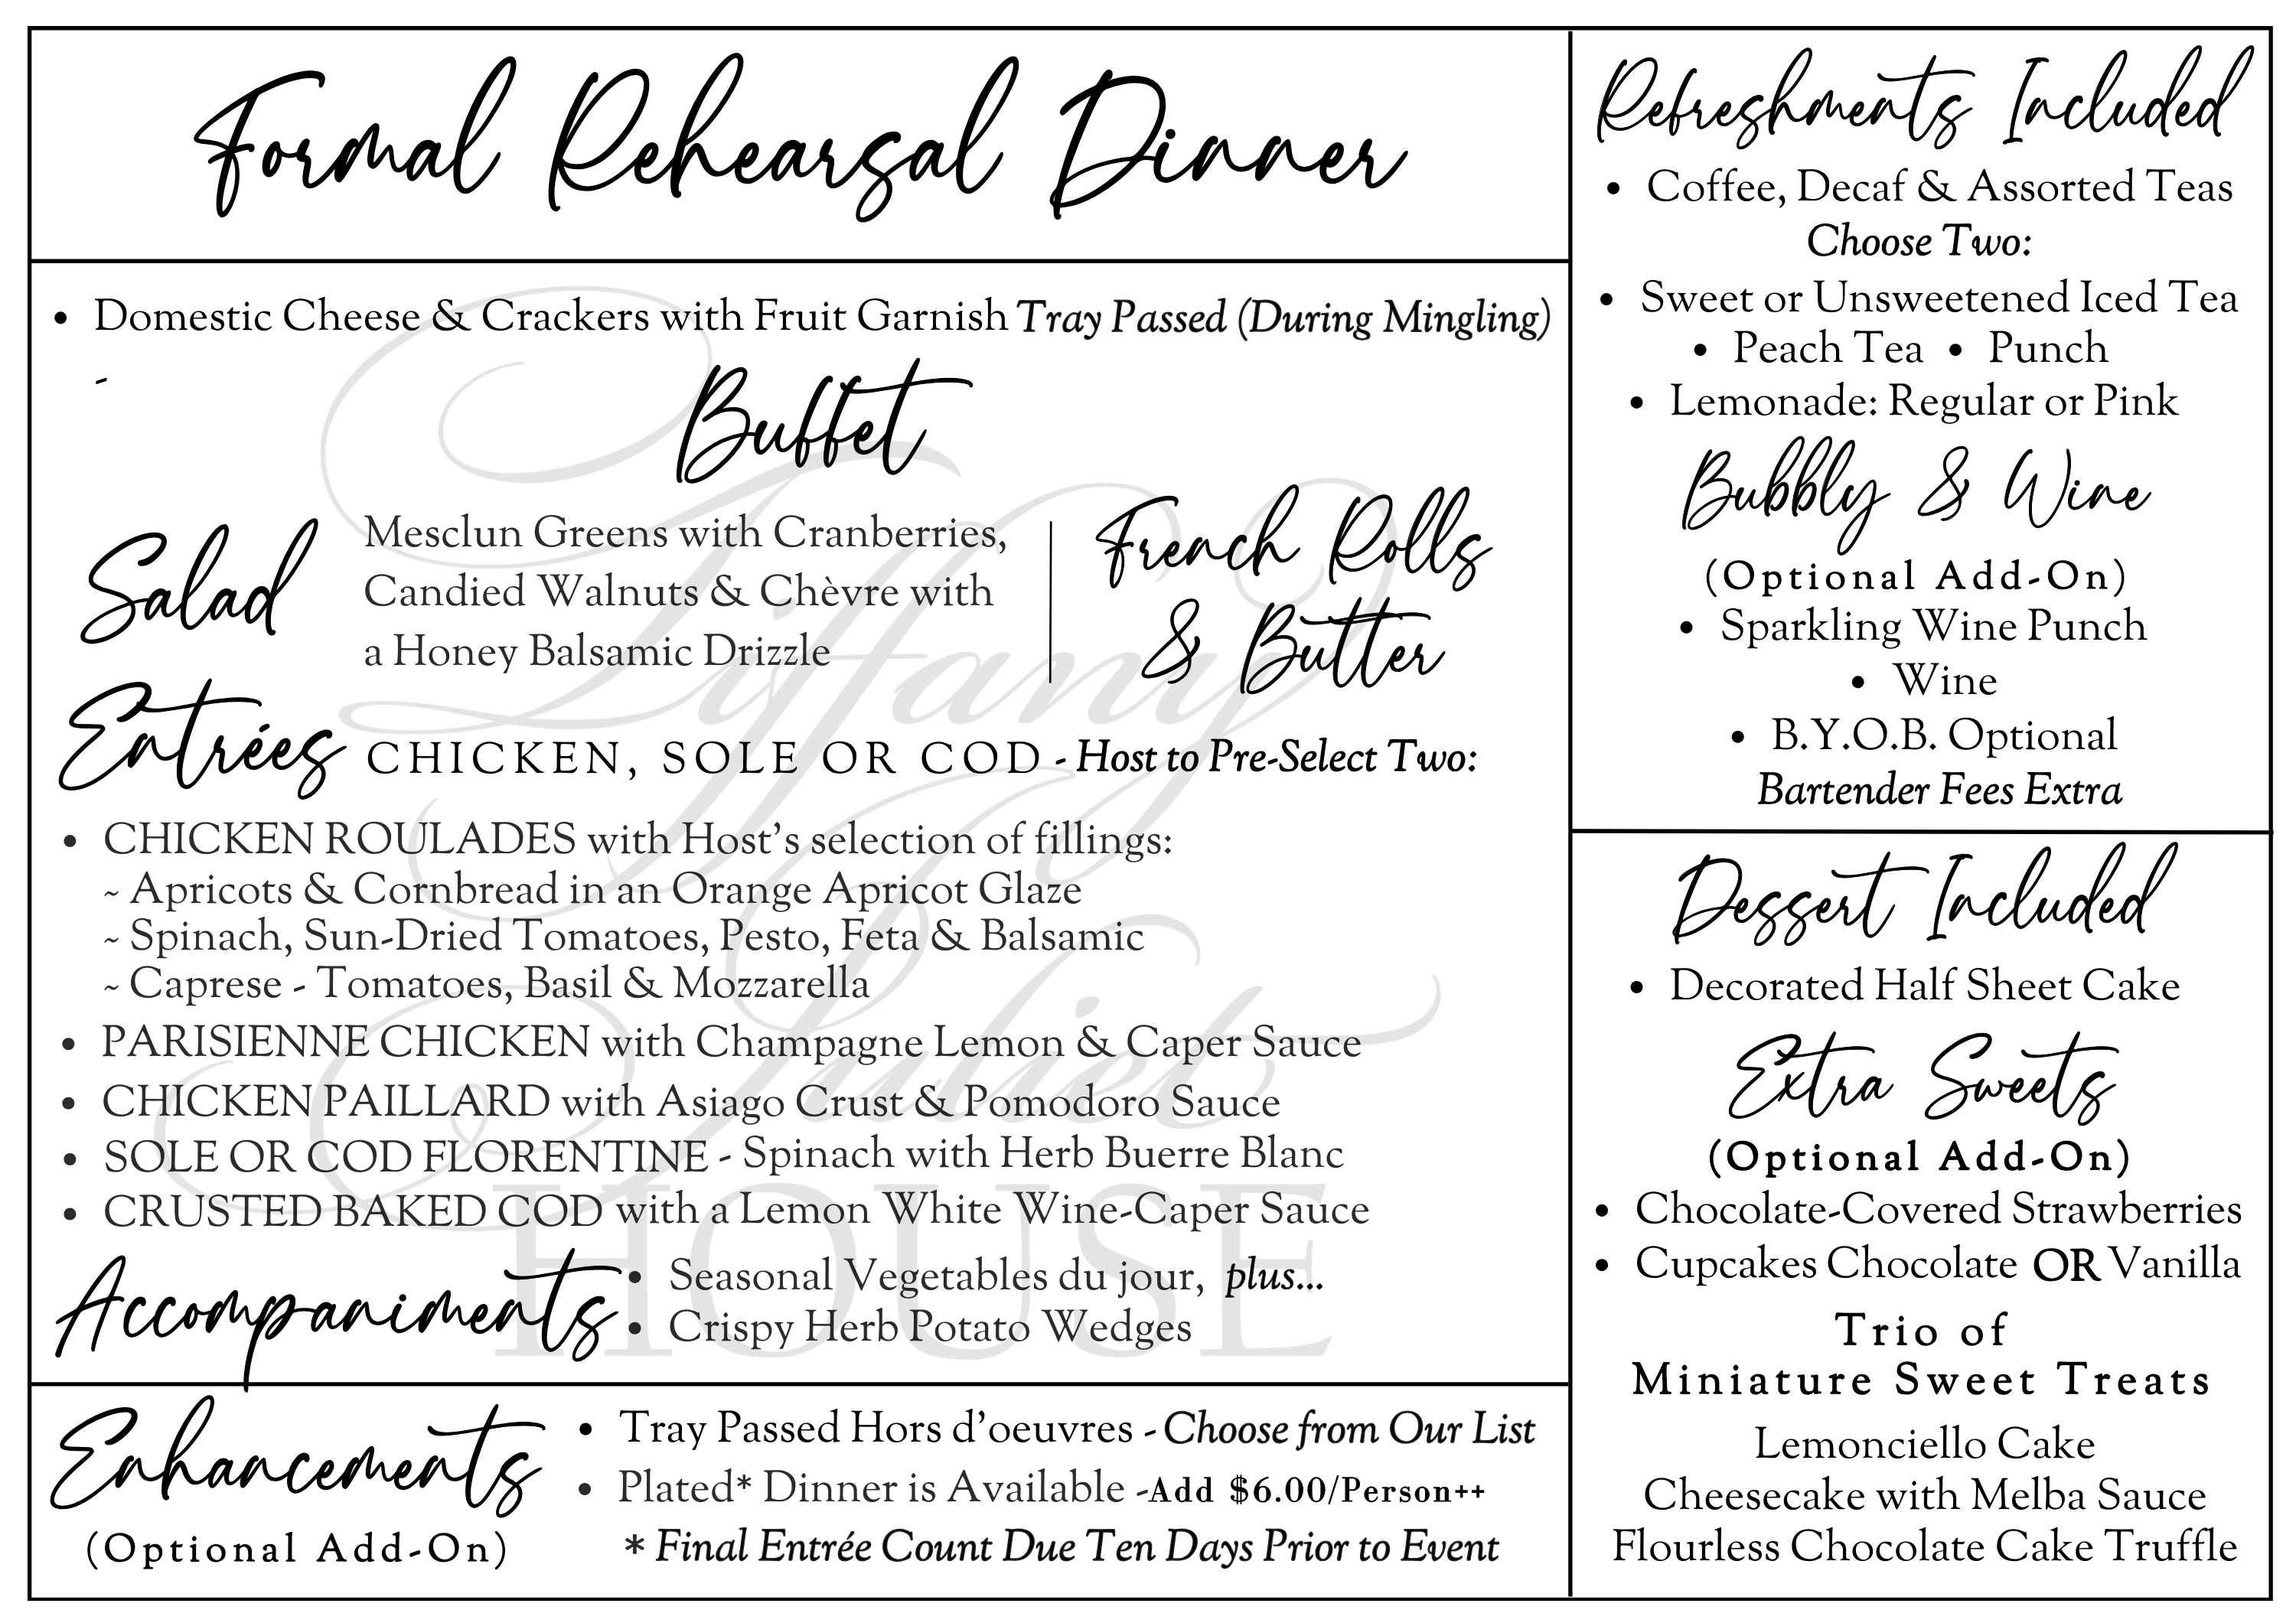 Formal Rehearsal Dinner
• Domestic Cheese & Crackers with Fruit Garnish Tray Passed (During Mingling)
-
Buffet
Salad
Mesclun Greens with Cranberries,
Candied Walnuts & Chèvre with
a Honey Balsamic Drizzle
French Rolls
& Butter
Entrées CHICKEN, SOLE OR COD - Host to Pre-Select Two:
• CHICKEN ROULADES with Host's selection of fillings:
~ Apricots & Cornbread in an Orange Apricot Glaze
~ Spinach, Sun-Dried Tomatoes, Pesto, Feta & Balsamic
~ Caprese - Tomatoes, Basil & Mozzarella
• PARISIENNE CHICKEN with Champagne Lemon & Caper Sauce
• CHICKEN PAILLARD with Asiago Crust & Pomodoro Sauce
• SOLE OR COD FLORENTINE - Spinach with Herb Buerre Blanc
• CRUSTED BAKED COD with a Lemon White Wine-Caper Sauce
Accompaniments
• Seasonal Vegetables du jour, plus...
• Crispy Herb Potato Wedges
Enhancements
(Optional Add-On)
• Tray Passed Hors d'oeuvres - Choose from Our List
• Plated* Dinner is Available -Add $6.00/Person++
* Final Entrée Count Due Ten Days Prior to Event
Refreshments Included
• Coffee, Decaf & Assorted Teas
Choose Two:
• Sweet or Unsweetened Iced Tea
• Peach Tea • Punch
• Lemonade: Regular or Pink
Bubbly & Wine
(Optional Add-On)
• Sparkling Wine Punch
• Wine
• B.Y.O.B. Optional
Bartender Fees Extra
Dessert Included
• Decorated Half Sheet Cake
Extra Sweets
(Optional Add-On)
• Chocolate-Covered Strawberries
• Cupcakes Chocolate OR Vanilla
Trio of
Miniature Sweet Treats
Lemonciello Cake
Cheesecake with Melba Sauce
Flourless Chocolate Cake Truffle
Tiffany
Juliet
HOUSE